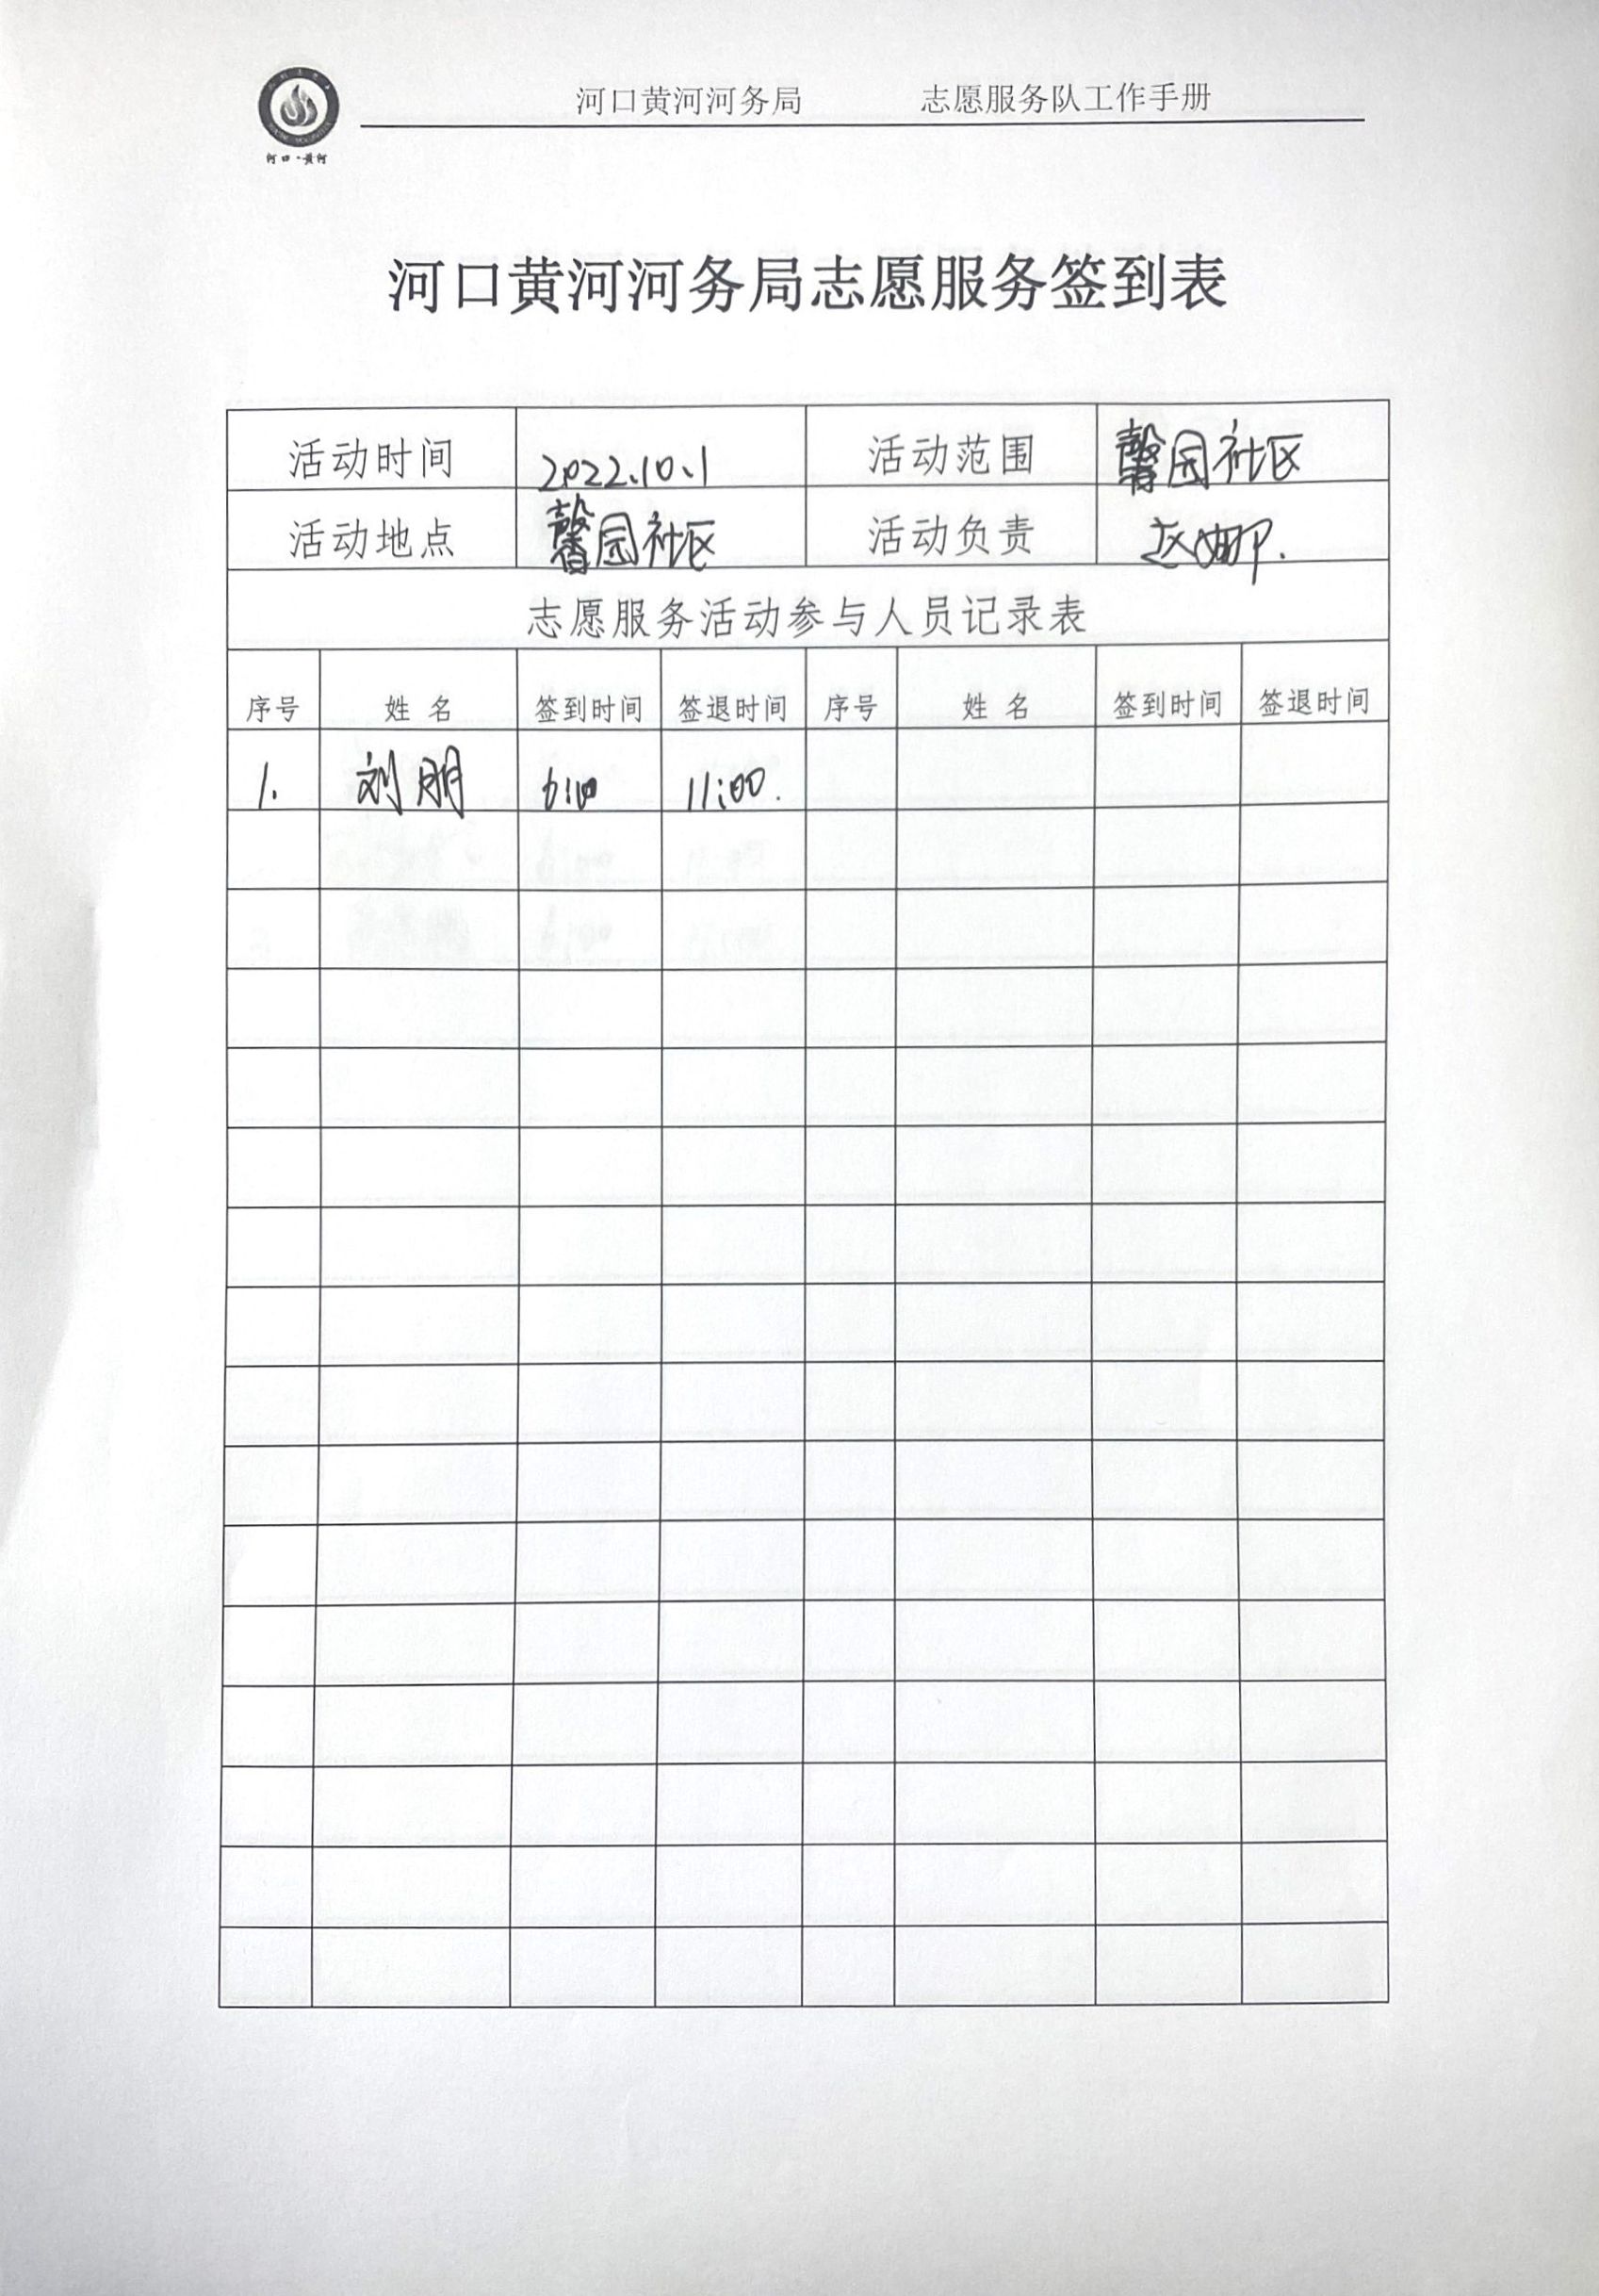 河口黄河河务局 志愿服务队工作手册
河口·黄河
河口黄河河务局志愿服务签到表
活动时间 2022.10.1 活动范围 馨园社区
活动地点 馨园社区 活动负责 赵娜.
志愿服务活动参与人员记录表
序号 姓 名 签到时间 签退时间 序号 姓 名 签到时间 签退时间
1. 刘朋 6:00 11:00.